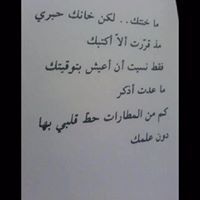 ما خنتك.. لكن خانك حبري
مذ قرّرت ألاّ أكتبك
فقط نسيت أن أعيش بتوقيتك
ما عدت أذكر
كم من المطارات حط قلبي بها
دون علمك